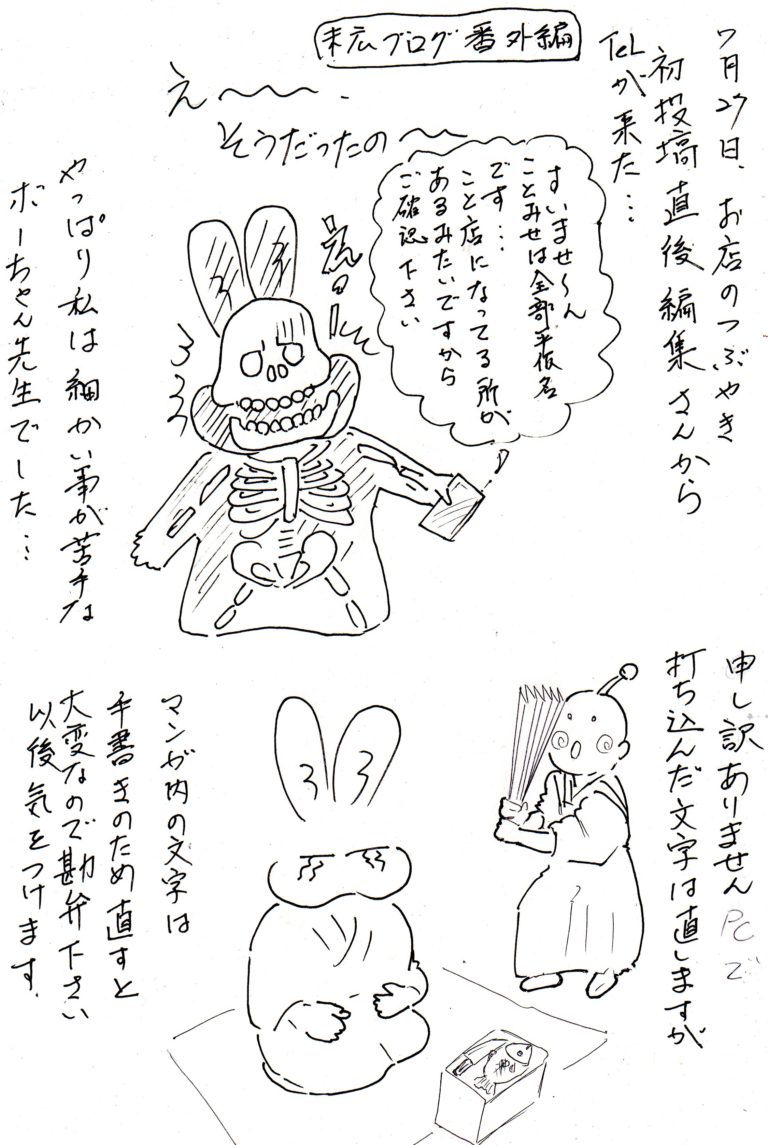 末広ブログ番外編
7月27日、お店のつぶやき
初投稿直後編集さんから
TeLが来た…
すいませ〜ん
ことみせは全部平仮名
です…
こと店になってる所が
あるみたいですから
ご確認下さい
え〜〜〜.
そうだったの〜〜
やっぱり私は細かい事が苦手な
ボーちゃん先生でした…
申し訳ありませんPCで
打ち込んだ文字は直しますが
マンガ内の文字は
手書きのため直すと
大変なので勘弁下さい
以後気をつけます.